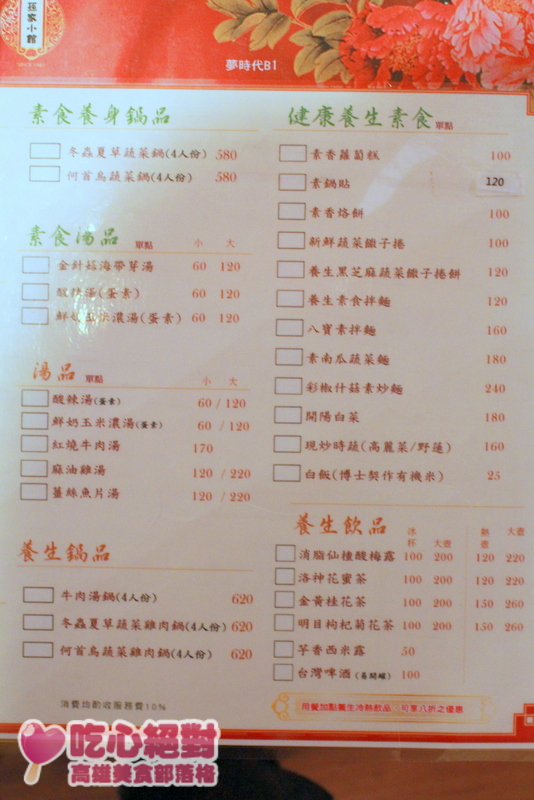 孫家小館
SINCE 1981
夢時代B1
素食養身鍋品
冬蟲夏草蔬菜鍋(4人份) 580
何首烏蔬菜鍋(4人份) 580
素食湯品 單點 小 大
金針菇海帶芽湯 60 120
酸辣湯(蛋素) 60 120
鮮奶玉米濃湯(蛋素) 60 120
湯品 單點 小 大
酸辣湯(蛋素) 60 / 120
鮮奶玉米濃湯(蛋素) 60 / 120
紅燒牛肉湯 170
麻油雞湯 120 / 220
薑絲魚片湯 120 / 220
養生鍋品
牛肉湯鍋(4人份) 620
冬蟲夏草蔬菜雞肉鍋(4人份) 620
何首烏蔬菜雞肉鍋(4人份) 620
消費均酌收服務費10%
健康養生素食 單點
素香蘿蔔糕 100
素鍋貼 120
素香烙餅 100
新鮮蔬菜潤子捲 100
養生黑芝麻蔬菜潤子捲餅 120
養生素食拌麵 120
八寶素拌麵 160
素南瓜蔬菜麵 180
彩椒什菇素炒麵 240
開陽白菜 180
現炒時蔬(高麗菜/野蓮) 160
白飯(博士契作有機米) 25
養生飲品 冰杯 大壺 熱壺 大壺
消脂仙楂酸梅露 100 200 120 220
洛神花蜜茶 100 200 120 220
金黃桂花茶 100 200 150 260
明目枸杞菊花茶 100 200 150 260
芋香西米露 50
台灣啤酒(易開罐) 100
用餐加點養生冷熱飲品，可享八折之優惠
吃心絕對
高雄美食部落格